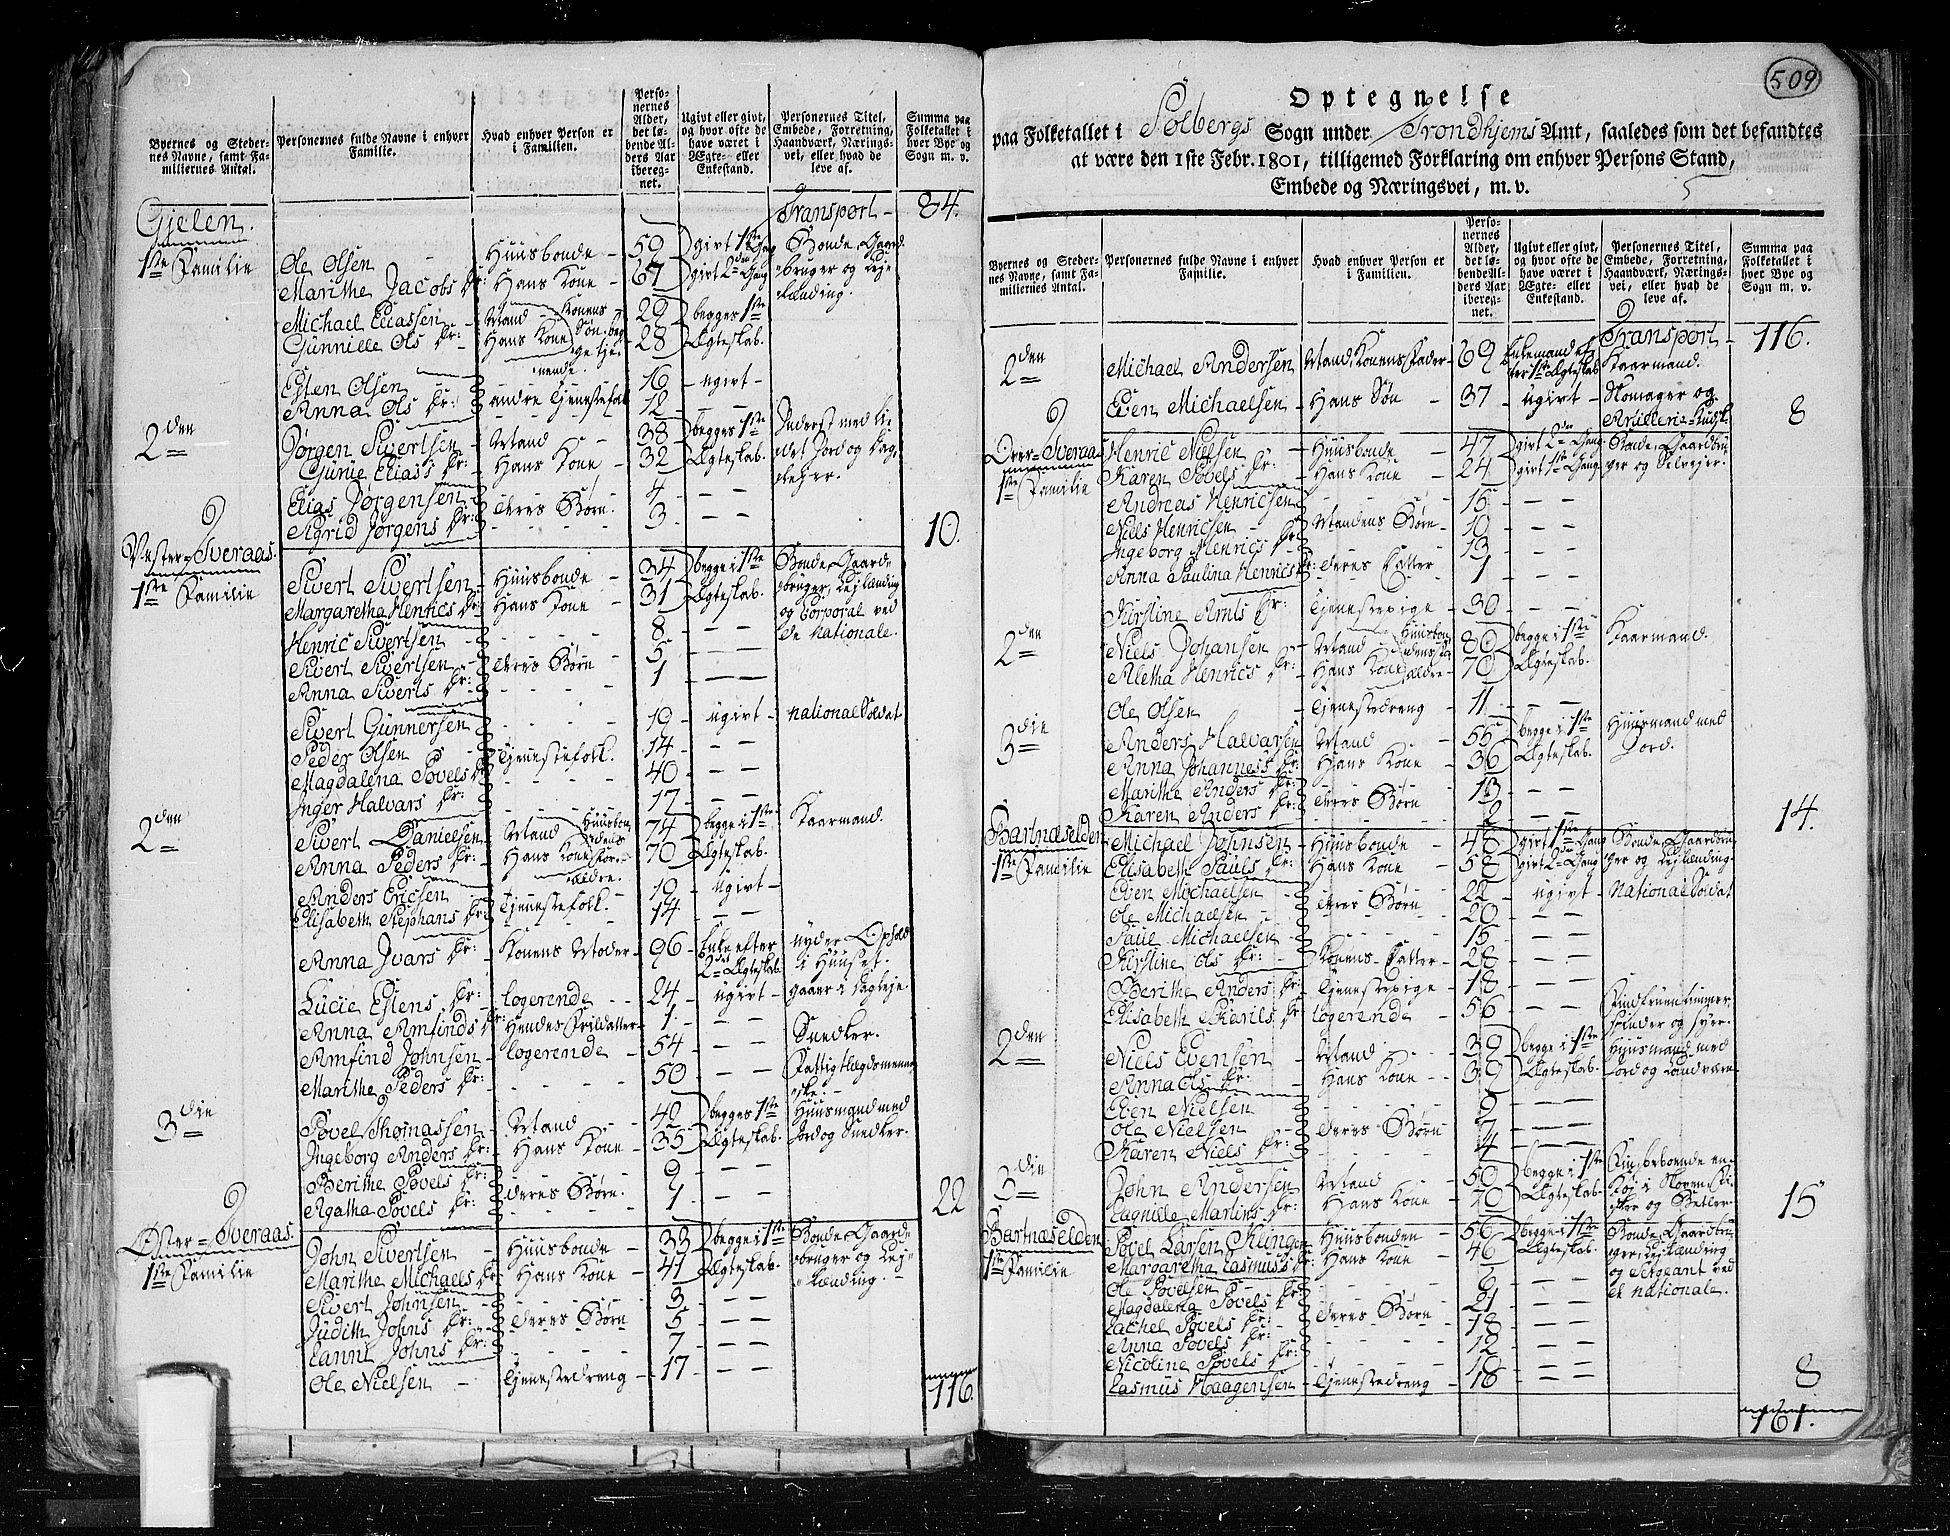 Byernes og Steder-
nes Navne, samt Fa-
miliernes Antal.
Personernes fulde Navne i enhver
Familie.
Hvad enhver Person er
i Familien.
Perso-
nernes
Alder,
det lø-
bende Al-
ders Aar
iberegnet.
Ugivt eller givt,
og hvor ofte de
have været i
Ægte- eller
Enkestand.
Personernes Titel,
Embede, Forretning,
Haandværk, Nærings-
vei, eller hvad de
leve af.
Summa paa
Folketallet i
hver Bye og
Sogn m. v.
Transport - 84.
Gielen.
1ste Familie
Ole Olsen - Huusbonde - 59 givt 1ste Gang Bonde, Gaard-
Marithe Jacobs Dr: Hans Kone - 67 givt 2den Gang bruger og Lej-
lænding.
Michael Eliassen - Mand - Konens Søn, beg- 29 begges 1ste
Gunnille Ols Dr: - Hans Kone ge tje- 28 Ægteskab.
nende.
Esten Olsen 16 - ugivt -
Anna Ols Dr: andre Tjenestefolk 12 - —
2den
Jørgen Sivertsen - Mand - 38 begges 1ste Inderst med li-
Gurie Elias Dr: Hans Kone - 32 Ægteskab. det Jord og Dag-
Elias Jørgensen 4 - —
Sigrid Jørgens Dr: deres Børn. 3 - —
10.
Vester-Sveraas.
1ste Familie
Sivert Sivertsen - Huusbonde - 34 begge i 1ste Bonde, Gaard-
Margaretha Henrics Dr: Hans Kone - 31 Ægteskab. bruger, Lejlænding
og Corporal ved
de nationale.
Henric Sivertsen 8 - —
Sivert Sivertsen deres Børn 5 - —
Anna Siverts Dr: 1 - —
Sivert Gunnersen 19 - ugivt - national Soldat
Peder Olsen 14 - —
Magdalena Povels Dr: Tjenestefolk. 40 - —
Inger Halvars Dr: 17 - —
2den
Sivert Danielsen Mand Huusbon- 74 begge i 1ste Kaarmand.
Anna Peders Dr: Hans Kone dens For- 70 Ægteskab.
ældre.
Anders Ericsen 19 - ugivt -
Elisabeth Stephans Dr: Tjenestefolk. 14 - —
Anna Ivars Dr: Konens Moder - 96 - Enke efter nyder Ophold
2det Ægteskab i Huuset.
Lucie Estens Dr: logerende - 24 - ugivt - gaaer i Dagleje.
Anna Amfinds Dr: Hendes Frildatter - 1 - —
Amfind Johnsen - logerende - 54 - — Snedker.
Marithe Peders Dr: 50 - — Fattig Lægdsmenne-
ske.
3die
Povel Thomassen - Mand - 42 begges 1ste Huusmand med
Ingeborg Anders Dr: Hans Kone - 35 Ægteskab. Jord og Snedker.
Berithe Povels Dr: 9 - —
Agatha Povels Dr: deres Børn. 1 - —
22
Øster-Sveraas.
1ste Familie
John Sivertsen - Huusbonde - 33 begge i 1ste Bonde, Gaard-
Marithe Michaels Dr: Hans Kone - 41 Ægteskab. bruger og Lej-
lænding.
Sivert Johnsen 3 - —
Judith Johns Dr: deres Børn 5 - —
Lanni Johns Dr: 7 - —
Ole Nielsen - Tjenestedreng - 17 - —
116.
509
Optegnelse
paa Folketallet i Solbergs Sogn under Trondhjems Amt, saaledes som det befandtes
at være den 1ste Febr. 1801, tilligemed Forklaring om enhver Persons Stand,
Embede og Næringsvei, m. v.
5
Byernes og Steder-
nes Navne, samt Fa-
miliernes Antal.
Personernes fulde Navne i enhver
Familie.
Hvad enhver Person er
i Familien.
Perso-
nernes
Alder,
det lø-
bende Al-
ders Aar
iberegnet.
Ugivt eller givt,
og hvor ofte de
have været i
Ægte- eller
Enkestand.
Personernes Titel,
Embede, Forretning,
Haandværk, Nærings-
vei, eller hvad de
leve af.
Summa paa
Folketallet i
hver Bye og
Sogn m. v.
Transport - 116.
2den
Michael Andersen - Mand, Konens Fader - 69 Enkemand ef- Kaarmand.
ter 1ste Ægteskab
Even Michaelsen - Hans Søn - 37 - ugivt - Skomager og
Artillerie-Kudsk.
8
Over-Sveraas
1ste Familie
Henric Nielsen - Huusbonde - 47 givt 2den Gang Bonde, Gaardbru-
Karen Povels Dr: Hans Kone - 24 givt 1ste Gang ger og Selvejer.
Andreas Henricsen 15 - —
Niels Henricsen - Mandens Børn 10 - —
Ingeborg Henrics Dr: 13 - —
Anna Paulina Henrics Dr: deres Datter - 1 - —
Kirstine Arnts Dr: Tjenestepige - 30 - —
2den
Niels Johansen - Mand Huusbon- 80 begge i 1ste Kaarmand.
Aletha Henrics Dr: Hans Kone ældre - 70 Ægteskab.
Ole Olsen - Tjenestedreng - 11 - —
3die
Anders Halvarsen - Mand - 55 begge i 1ste Huusmand med
Anna Johanness Dr: Hans Kone - 36 Ægteskab. Jord.
Marithe Anders Dr: 13 - —
Karen Anders Dr: deres Børn 2 - —
14.
Bartnæselden
1ste Familie
Michael Johnsen - Huusbonde - 48 givt 1ste Gang Bonde, Gaardbru-
Elisabeth Pauls Dr: Hans Kone 58 givt 2den Gang ger og Lejlænding
Even Michaelsen 22 - ugivt - national Soldat
Ole Michaelsen - deres Børn 20 - —
Paul Michaelsen 15 - —
Kirstine Ols Dr: Konens Datter - 28 - —
Berithe Anders Dr: Tjenestepige - 18 - —
Elisabeth Karils Dr: logerende - 56 - — Findfruentimmer
spinder og syer.
2den
Niels Evensen - Mand - 39 begge i 1ste Huusmand med
Anna Ols Dr: Hans Kone - 39 Ægteskab. Jord og Landværn
Even Nielsen 9 - —
Ole Nielsen - deres Børn 7 - —
Karen Niels Dr: 4 - —
3die
John Andersen - Mand - 50 begge i 1ste
Lagnille Martins Dr: Hans Kone - 40 Ægteskab.
15
Bartnæselden
1ste Familie
Povel Larsen Klingen Huusbonden - 56 begge i 1ste Bonde, Gaardbru-
Margaretha Lasmus Dr: Hans Kone 46 Ægteskab. ger, Lejlænding
og Sergeant ved
de nationale.
Ole Povelsen 6 - —
Magdalena Povels Dr: 21 - —
Lachel Povels Dr: deres Børn 18 - —
Anna Povels Dr: 12 - —
Nicoline Povels Dr: 10 - —
Lasmus Haagensen - Tjenestedreng - 18 - —
8
161.